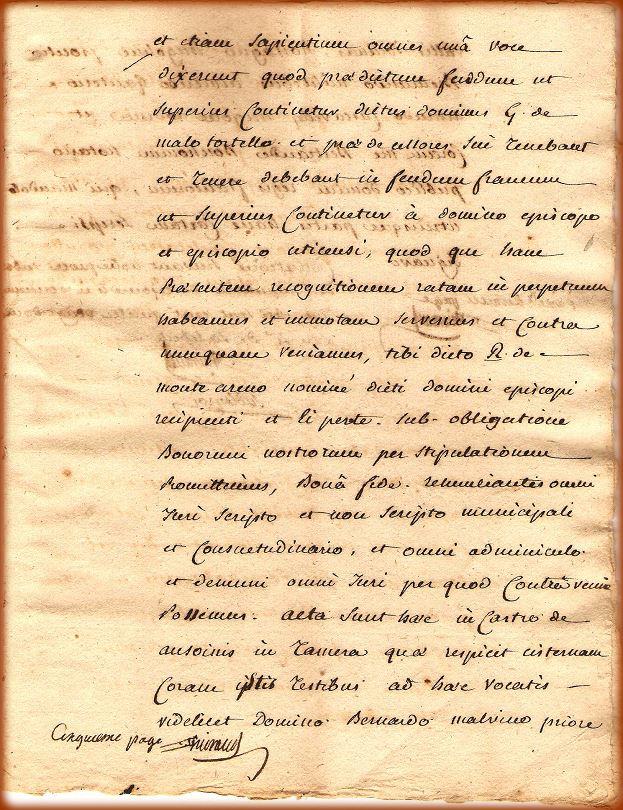 et etiam sapientium omnes unâ voce
dixerunt quod prædictum feudum ut
superius continetur dictus dominus G. de
malo tortello. et prædecessores sui tenebant
et tenere debebant in feudum francum
ut superius continetur à domino episcopo
et episcopio uticensi, quod que hanc
Præsentem recognitionem ratam in perpetuum
habeamus et immotam servemus et contra
nunquam veniamus, tibi dicto R. de
monte areno nominé dicti domini episcopi
recipienti et li perte. sub. obligatione
Bonorum nostrorum per stipulationem
Promittimus, Bonâ fide. renunciantes omni
Juri scripto et non scripto municipali
et Consuetudinario, et omni adminiculo.
et demum omni Juri per quod Contrà venire
Possemus. acta sunt hæc in Castro de
ansoinis in Camera quæ respicit cisternam
Coram istis Testibus ad hæc vocatis
videlicet Domino Bernardo malvino priore
Cinquieme page